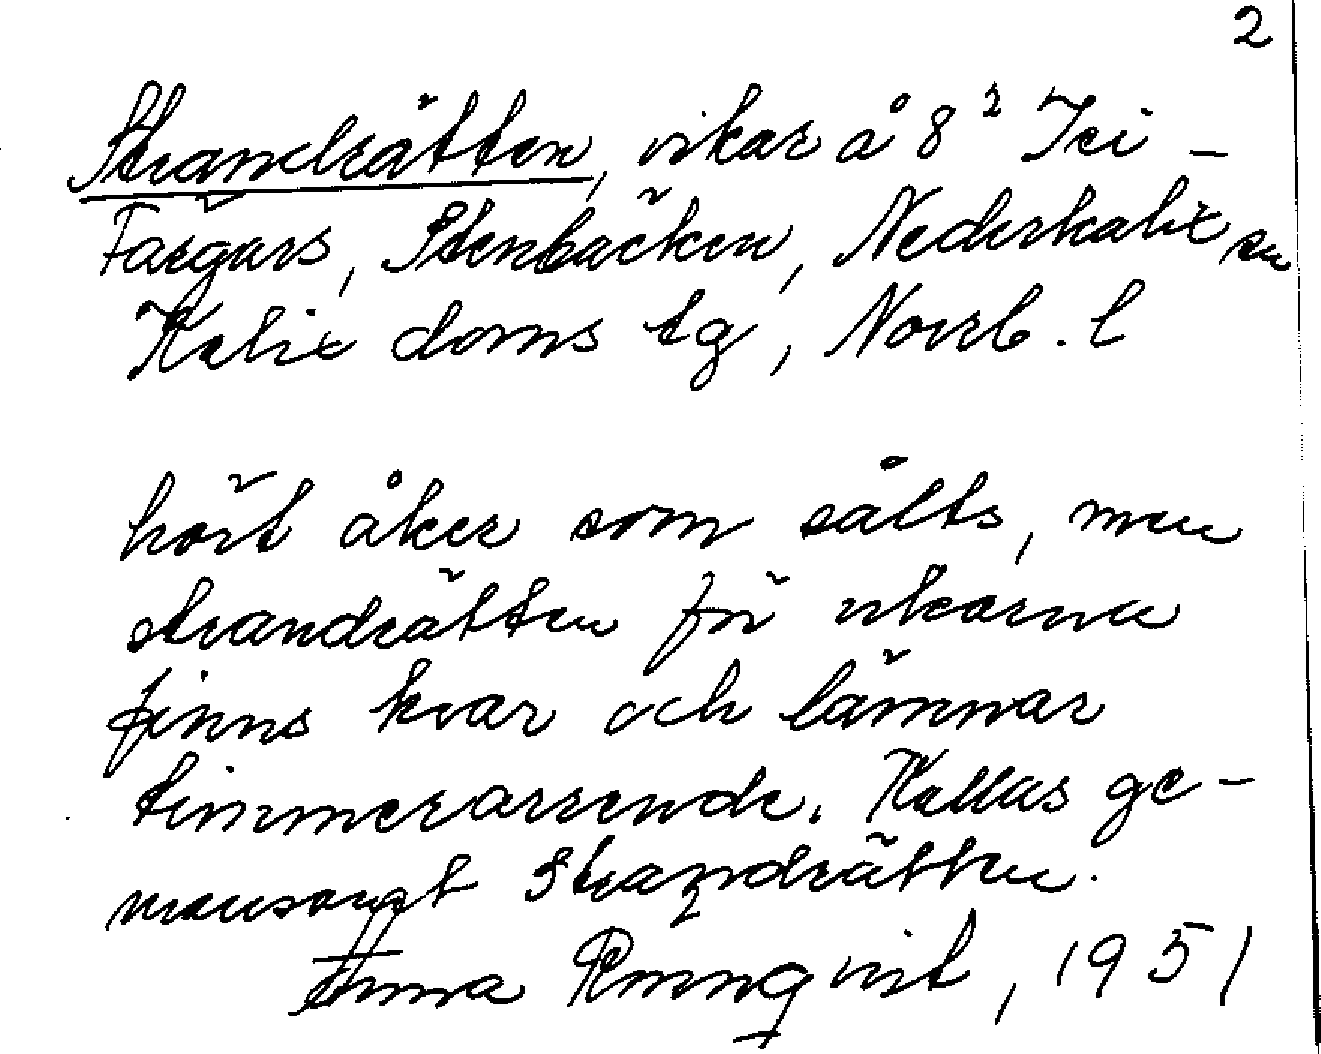 2
Strandrätten, vikar å 8²
Färgars, Stenbäcken, Nederkalix sn
Kalix doms tg, Norrb. l
hört åker som sålts, men
strandrätten för vikarna
finns kvar och lämnar
timmerarrende. Kallas ge-
mensamt Strandrätten.
Anna Rönnqvist, 1951